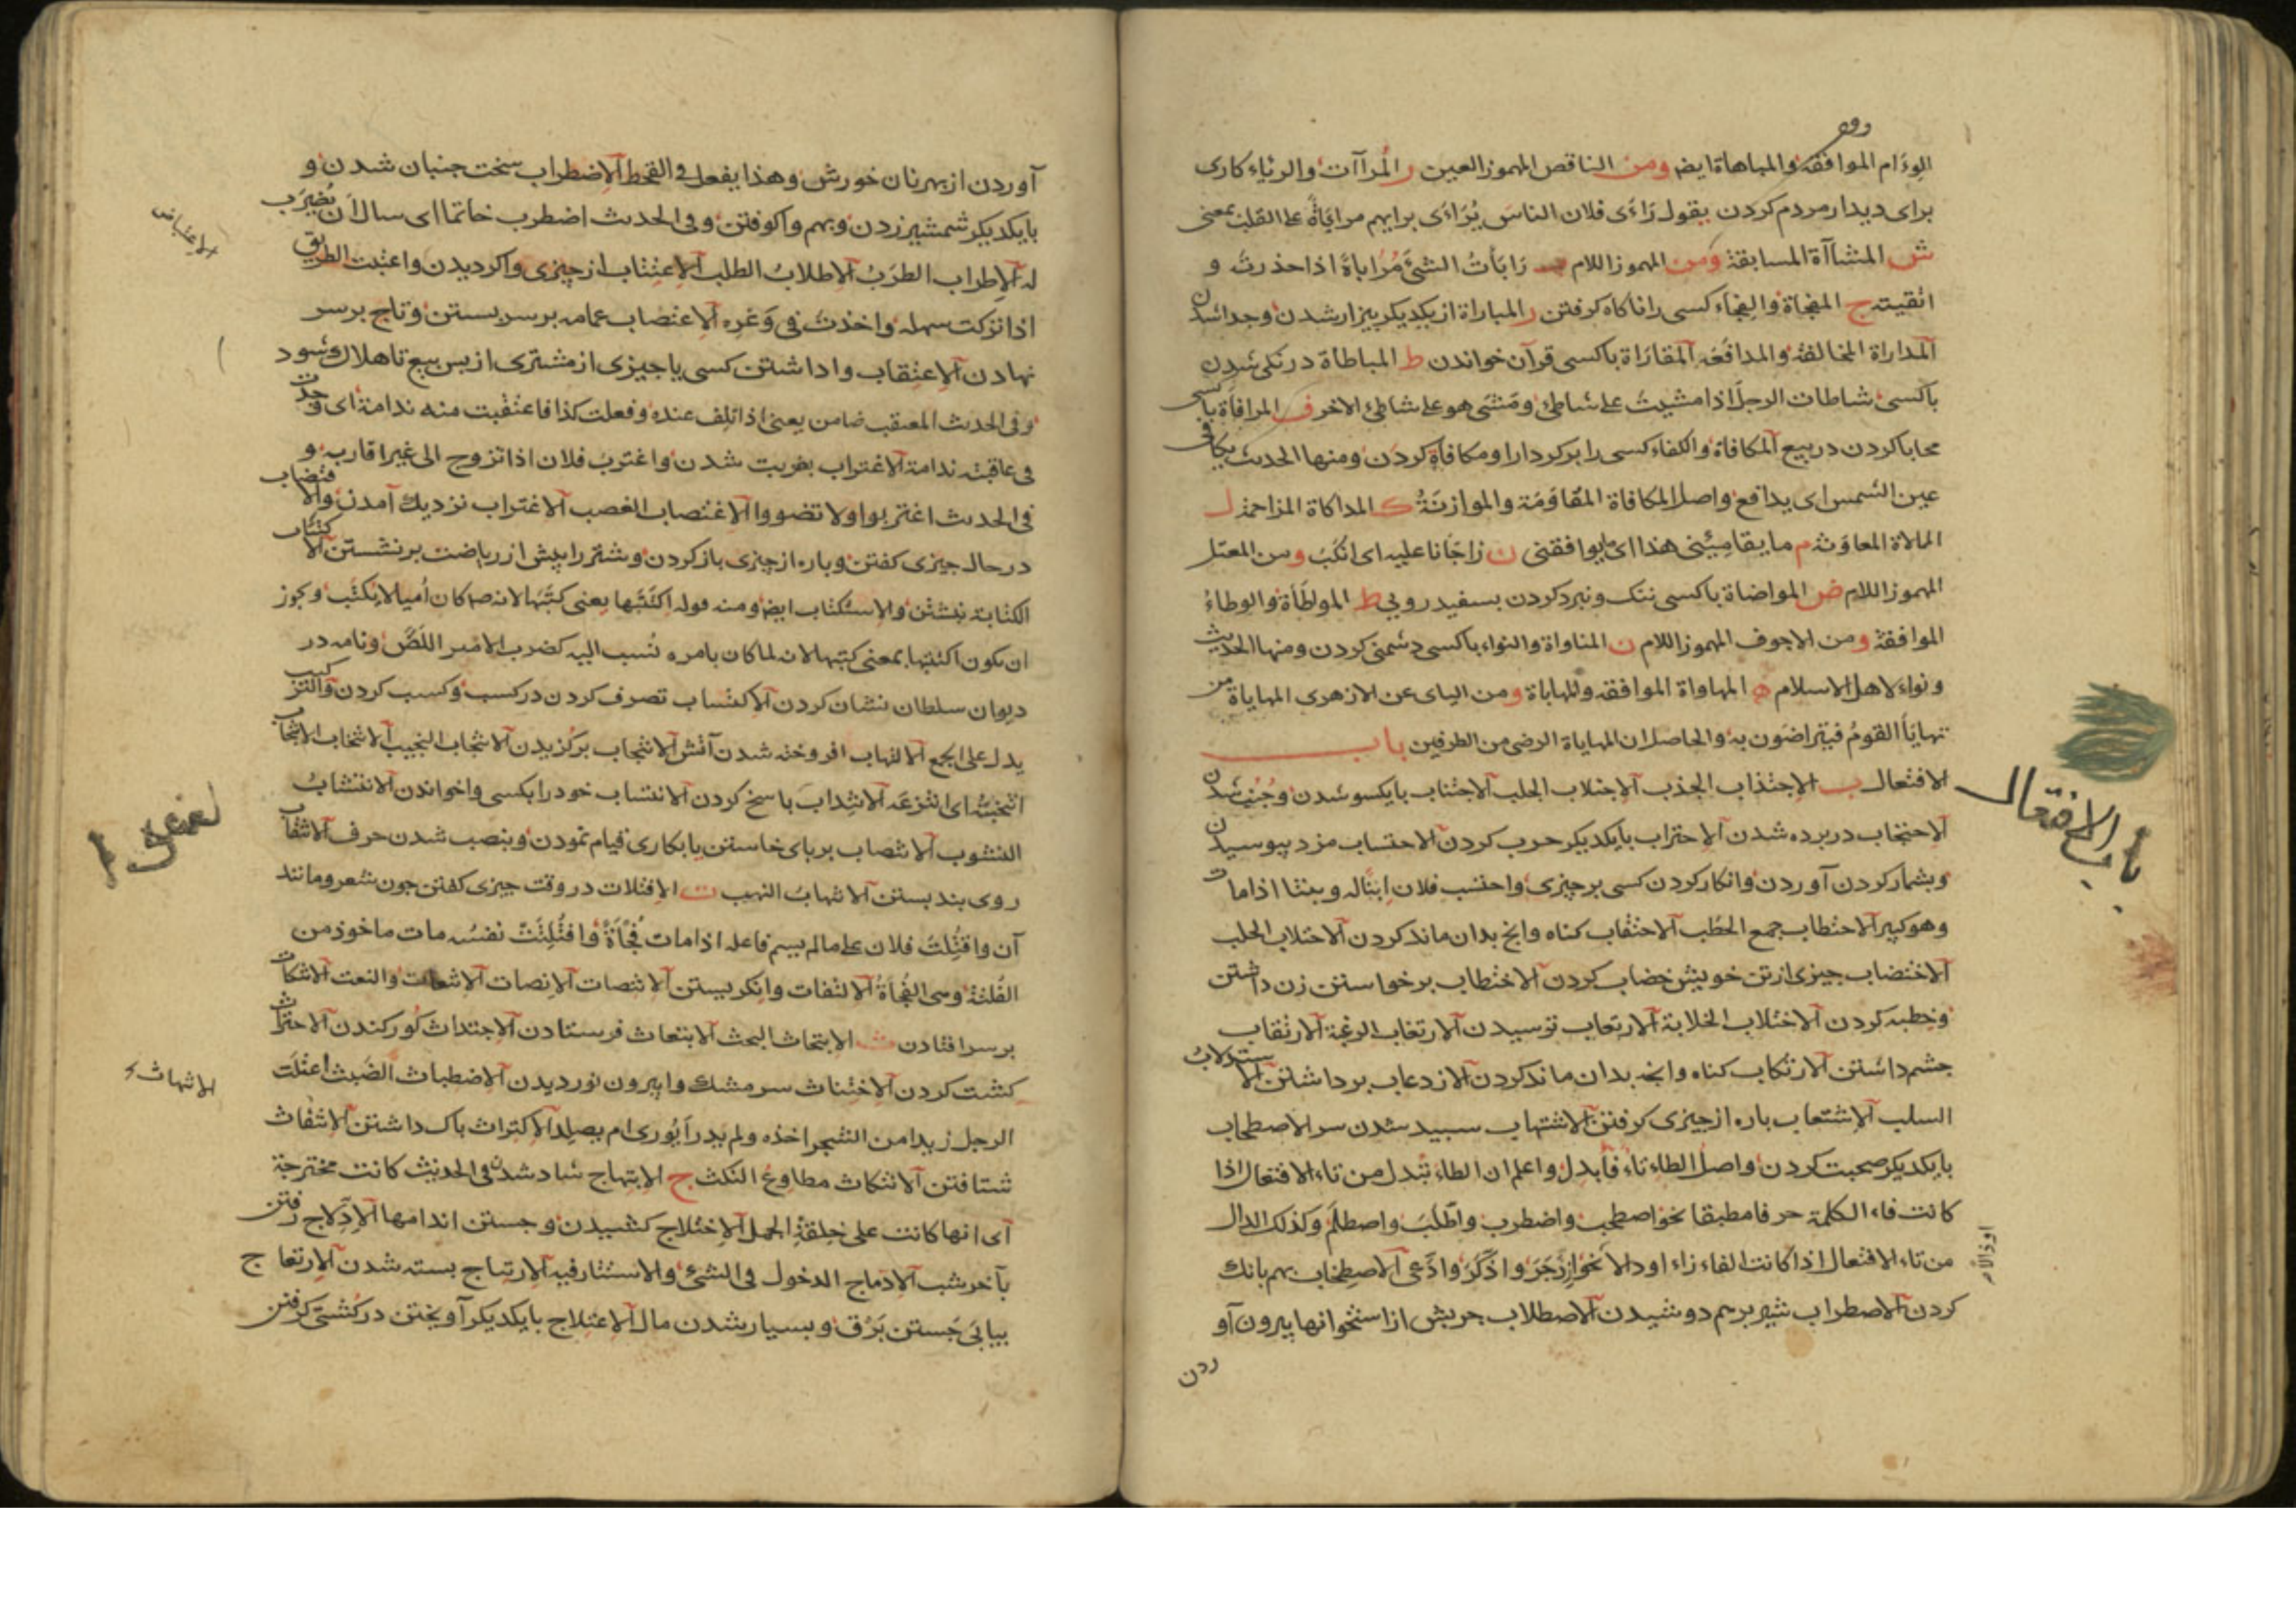 الوءام الموافقة والمباهاة ايض ومن الناقص المهموز العين ر المراآت والرئاء كارى
براى ديدار مردم كردن يقول راءى فلان الناس يراءى براييهم مراياة على القلب بمعنى
ش المشاآة المسابقة ومن المهموز اللام ب رابأت الشئ مرابأة اذا حذرت و
اتقيته ج المفجاة والفجاء كسى را ناكاه كرفتن ر المباراة از يكديكر بيزار شدن وجدا شدن
المداراة المخالفة والمدافعة المقاراة باكسى قرآن خواندن ط المباطاة درنكى شدن
باكسى شاطات الرجل اذا مشيت على شاطئ ومشى هو على شاطئ الاخر ف المرافاة با كسى
محابا كردن در بيع المكافاة والكفاء كسى را بركردار او مكافاة كردن ومنها الحديث يكافى
عين الشمس اى يدافع واصل المكافاة المقاومة والموازنة ك المداكاة المزاحمة ل
الملاة المعاونة م ما يقاميئنى هذا اى ما يوافقنى ن زاجانا عليه اى انكب ومن المعتل
المهموز اللام ض المواضاة باكسى ننك ونبرد كردن بسفيد رويى ط المواطأة والوطاء
الموافقة ومن الاجوف المهموز اللام ن المناواة والنواء باكسى دشمنى كردن ومنها الحديث
ونواء لاهل الاسلام ه المهاواة الموافقه والمهاياة ومن الياى عن الازهرى المهاياة من
تهايأ القوم فيتراضون به والحاصل ان المهاياة الرضى من الطرفين باب
الافتعال ب الاجتذاب الجذب الاجتلاب الجلب الاجتناب بايكسو شدن وجنب شدن
الاحتجاب در برده شدن الاحتراب بايكديكر حرب كردن الاحتساب مزد بيوسيدن
وبشمار كردن آوردن وانكار كردن كسى بر چيزى واحتسب فلان ابنا له وبنتا اذا مات
وهو كبير الاحتطاب جمع الحطب الاحتقاب كناه وانچ بدان ماند كردن الاحتلاب الحلب
الاختضاب چيزى از تن خويش خضاب كردن الاختطاب برخواستن زن داشتن
وخطبه كردن الاختلاب الخلابة الارتعاب ترسيدن الارتغاب الرغبة الارتقاب
چشم داشتن الارتكاب كناه وانچه بدان ماند كردن الازدعاب برداشتن الاستلاب
السلب الاشتعاب باره از چيزى كرفتن الاشتهاب سبيد شدن سر الاصطحاب
بايكديكر صحبت كردن واصل الطاء تاء فابدل واعلم ان الطاء تبدل من تاء الافتعال اذا
كانت فاء الكلمة حرفا مطبقا نحو اصطحب واضطرب واطلب واصطلم وكذلك الدال
من تاء الافتعال اذا كانت الفاء زاء او دالا نحو ازدجر واذكر وادعى الاصطخاب بهم بانك
كردن الاصطراب شير برهم دوشيدن الاصطلاب چربش از استخوانها بيرون آو
ردن
باب الافتعال
او ذالا
آوردن از بهر نان خورش وهذا يفعل فى القحط الاضطراب سخت جنبان شدن و
بايكديكر شمشير زدن وبهم واكوفتن وفى الحديث اضطرب خاتما اى سال ان يضرب
له الاطراب الطرب الاطلاب الطلب الاعتتاب از چيزى واكرديدن واعتبت الطريق
اذا تركت سهله واخذت فى وعره الاعتصاب عمامه بر سر بستن وتاج بر سر
نهادن الاعتقاب واداشتن كسى يا چيزى از مشترى از بس بيع تا هلاك شود
وفى الحديث المعتقب ضامن يعنى اذا تلف عنده وفعلت كذا فاعتقبت منه ندامة اى وجدت
فى عاقبته ندامة الاغتراب بغربت شدن واغترب فلان اذا تزوج الى غير اقاربه و
فى الحديث اغتربوا ولا تضووا الاغتصاب الغصب الاغتراب نزديك آمدن والاقتضاب
در حال چيزى كفتن وباره از چيزى باز كردن وشتر را پيش از رياضت برنشستن الاكتتاب
الكتابة نبشتن والاستكتاب ايض ومنه قوله اكتتبها يعنى كتبها لانه صم كان اميا لا يكتب ويجوز
ان يكون اكتتبها بمعنى كتبها لانه لما كان بامره نسب اليه كضرب الامير اللص ونامه در
ديوان سلطان نشان كردن الاكتساب تصرف كردن در كسب وكسب كردن والتركيب
يدل على الجمع الالتهاب افروخته شدن آتش الانتجاب بركزيدن الانتجاب النجيب الانتخاب الانتخاب
انتخبته اى انتزعه الانتداب باسخ كردن الانتساب خود را بكسى واخواندن الانتشاب
النشوب الانتصاب برپاى خاستن يا بكارى قيام نمودن وبنصب شدن حرف الانتقاب
روى بند بستن الانتهاب النهب ت الافتلات در وقت چيزى كفتن چون شعر ومانند
آن وافتلت فلان على ما لم يسم فاعله اذا مات فجأة وافتلتت نفسه مات ماخوذ من
الفلتة وهى الفجأة الالتفات وانكريستن الانتصات الانصات الانتعات والنعت الانتكات
بر سر افتادن ث الابتحاث البحث الابتعاث فرستادن الاجتداث كور كندن الاحتراث
كشت كردن الاختناث سر مشك وا بيرون نورديدن الاضطباث الضبث اعتلث
الرجل زيدا من الشجر اخذه ولم يدر ايورى ام يصلد الاكتراث باك داشتن الانتقاث
شتافتن الانتكاث مطاوع النكث ج الابتهاج شاد شدن فى الحديث كانت مخترجة
اى انها كانت على خلقة الجمل الاختلاج كشيدن وجستن اندامها الادلاج رفتن
بآخر شب الادماج الدخول فى الشئ والاستتار فيه الارتتاج بسته شدن الارتعاج
بيابى جستن برق وبسيار شدن مال الاعتلاج بايكديكر آويختن در كشتى كرفتن